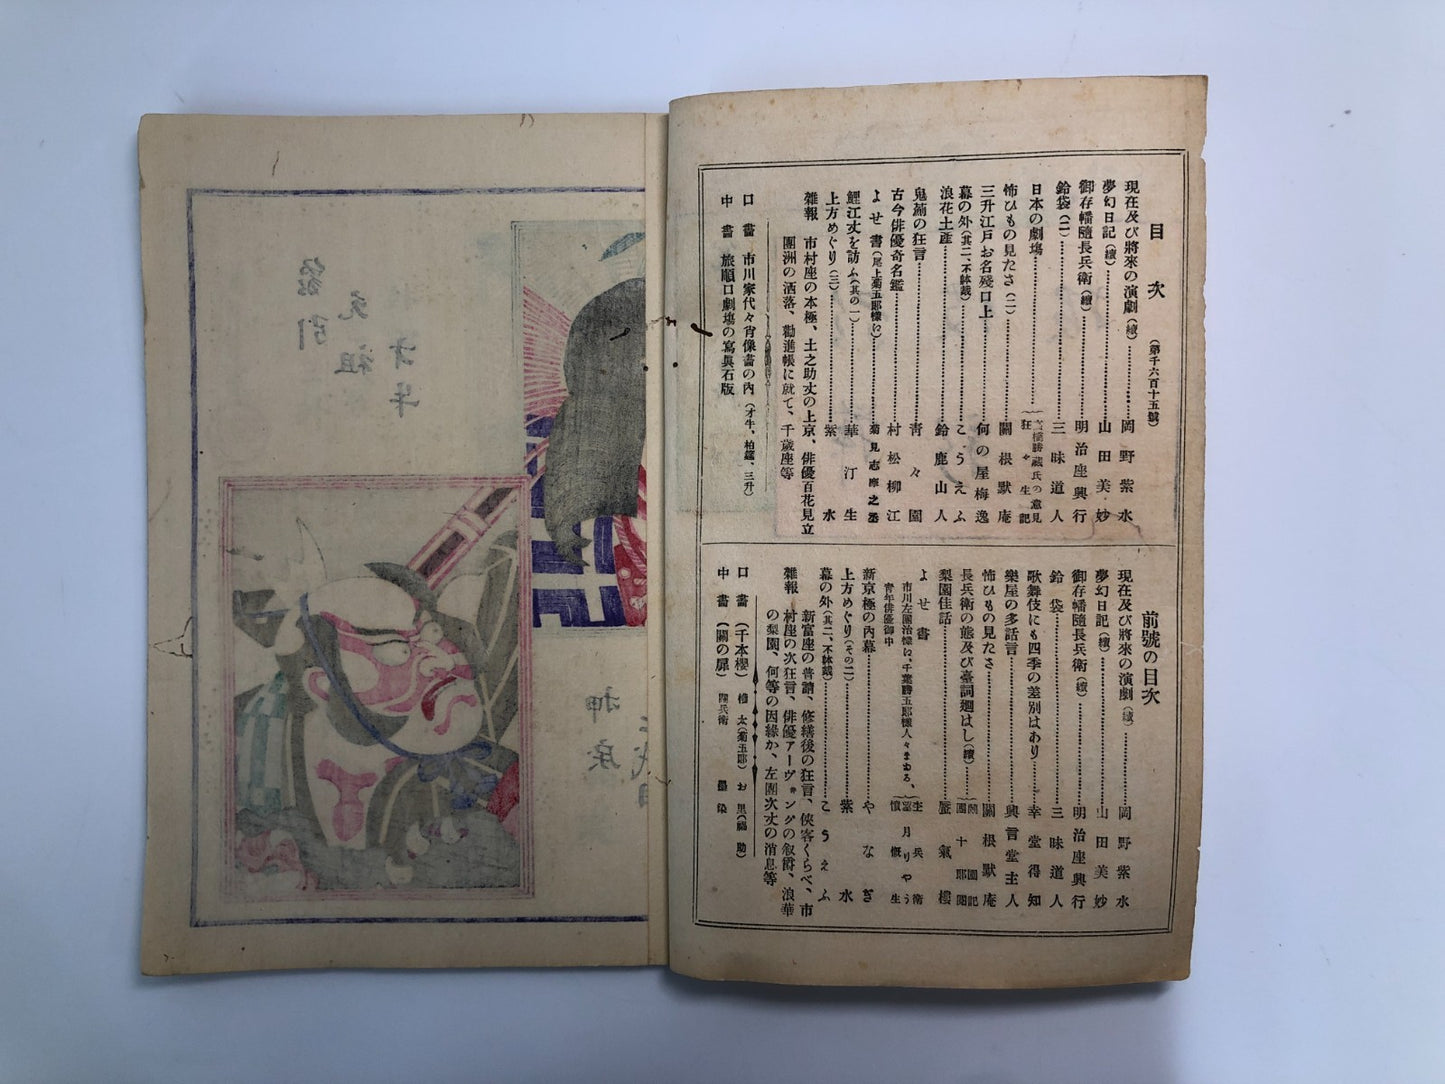 目次 (第千六百十五號)
現在及び將來の演劇(續)……岡野紫水
夢幻日記(續)……山田美妙
御存幡隨長兵衛(續)……明治座興行
鈴袋(二)……三味道人
日本の劇塲……高橋勝藏氏の意見 狂々生記
怖ひもの見たさ(二)……關根默庵
三升江戸お名殘口上……何の屋梅逸
幕の外(其二、不躰裁)……こうえふ
浪花土產……鈴鹿山人
鬼菊の狂言……靑々園
古今俳優奇名鑑……村松柳江
よせ書(尾上菊五郎樣に)……菊見志摩之丞
鯉江丈を訪ふ(其の一)……華汀生
上方めぐり(三)……紫水
雜報 市村座の本極、土之助丈の上京、俳優百花見立
團洲の洒落、勸進帳に就て、千歲座等
口畵 市川家代々肖像畵の內(才牛、柏莚、三升)
中畵 旅順口劇塲の寫眞石版
前號の目次
現在及び將來の演劇(續)……岡野紫水
夢幻日記(續)……山田美妙
御存幡隨長兵衛(續)……明治座興行
鈴袋……三味道人
歌舞伎にも四季の差別はあり……幸堂得知
樂屋の多話言……興言堂主人
怖ひもの見たさ……關根默庵
長兵衛の態及び臺詞廻はし(續)……關團記 團十郎閱
梨園佳話……蜃氣樓
よせ書
市川左團治樣に、千葉勝五郎樣人々まゐる、
靑年俳優御中
新京極の內幕……やなぎ
上方めぐり(その二)……紫水
幕の外(其二、不躰裁)……こうえふ
雜報 新富座の普請、修繕後の狂言、俠客くらべ、市
村座の次狂言、俳優アーヴヰングの叙爵、浪華
の梨園、何等の因緣か、左團次丈の消息等
口畵(千本櫻)權太(菊五郎)お里(福助)
中畵(關の扉)關兵衛 墨染
象引
元祖
才牛